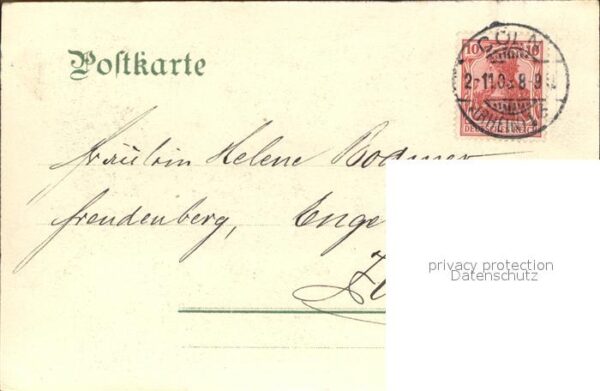 Postkarte
10 10
CÖLN
8-9
DEUTSCHES REICH
Fräulein Helene Bodmer
Freudenberg, Enge
privacy protection
Datenschutz